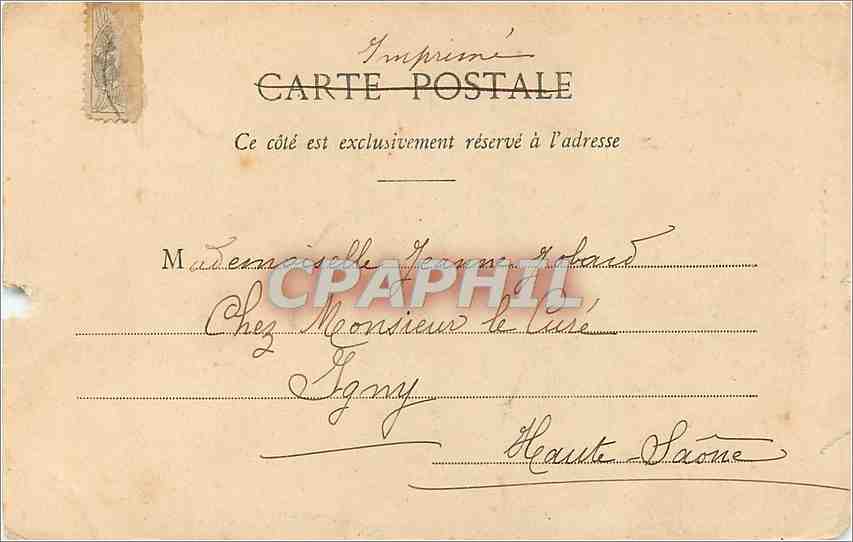 Imprimé
CARTE POSTALE
Ce côté est exclusivement réservé à l'adresse
Mademoiselle Jeanne Jobard
CPAPHIL
Chez Monsieur le Curé
Igny
Haute-Saône